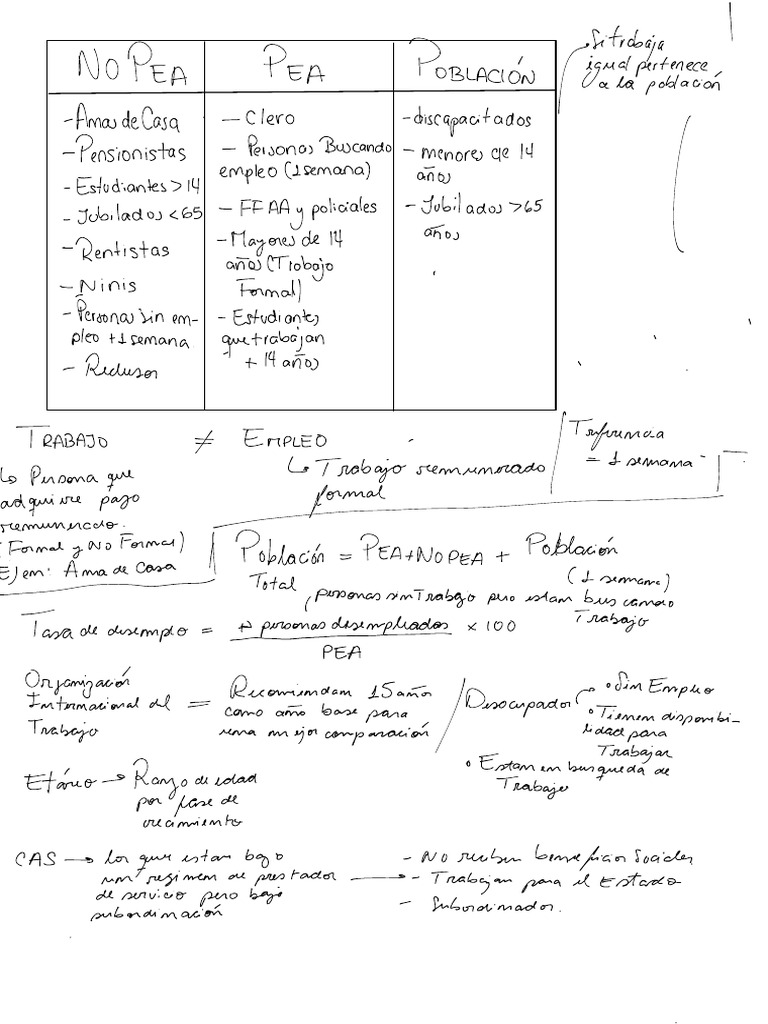 NO PEA
- Amas de Casa
- Pensionistas
- Estudiantes > 14
- Jubilados < 65
- Rentistas
- Ninis
- Personas sin em-
pleo + 1 semana
- Reclusos
PEA
- Clero
- Personas Buscando
empleo (1 semana)
- FFAA y policiales
- Mayores de 14
años (Trabajo
Formal)
- Estudiantes
que trabajan
+ 14 años
POBLACIÓN
- discapacitados
- menores de 14
años
- Jubilados > 65
años
Si trabaja
igual pertenece
a la población
TRABAJO ≠ EMPLEO
↳ Persona que
adquiere pago
remunerado.
(Formal y No Formal)
Ejem: Ama de Casa
↳ Trabajo remunerado
formal
= 1 semana
Población = PEA + NO PEA + Población
Total
(1 semana)
, personas sin Trabajo pero estan buscando
Trabajo
Tasa de desempleo = personas desempleados × 100
PEA
Organización
Internacional del
Trabajo
= Recomiendan 15 años
como año base para
una mejor comparación
Desocupados
• Sin Empleo
• Tienen disponibi-
lidad para
Trabajar
• Estan en busqueda de
Trabajo
Etáreo → Rango de edad
por fase de
crecimiento
CAS → los que estan bajo
un regimen de prestador
de servicio pero bajo
subordinación
- No reciben beneficios Sociales
- Trabajan para el Estado
- Subordinados.